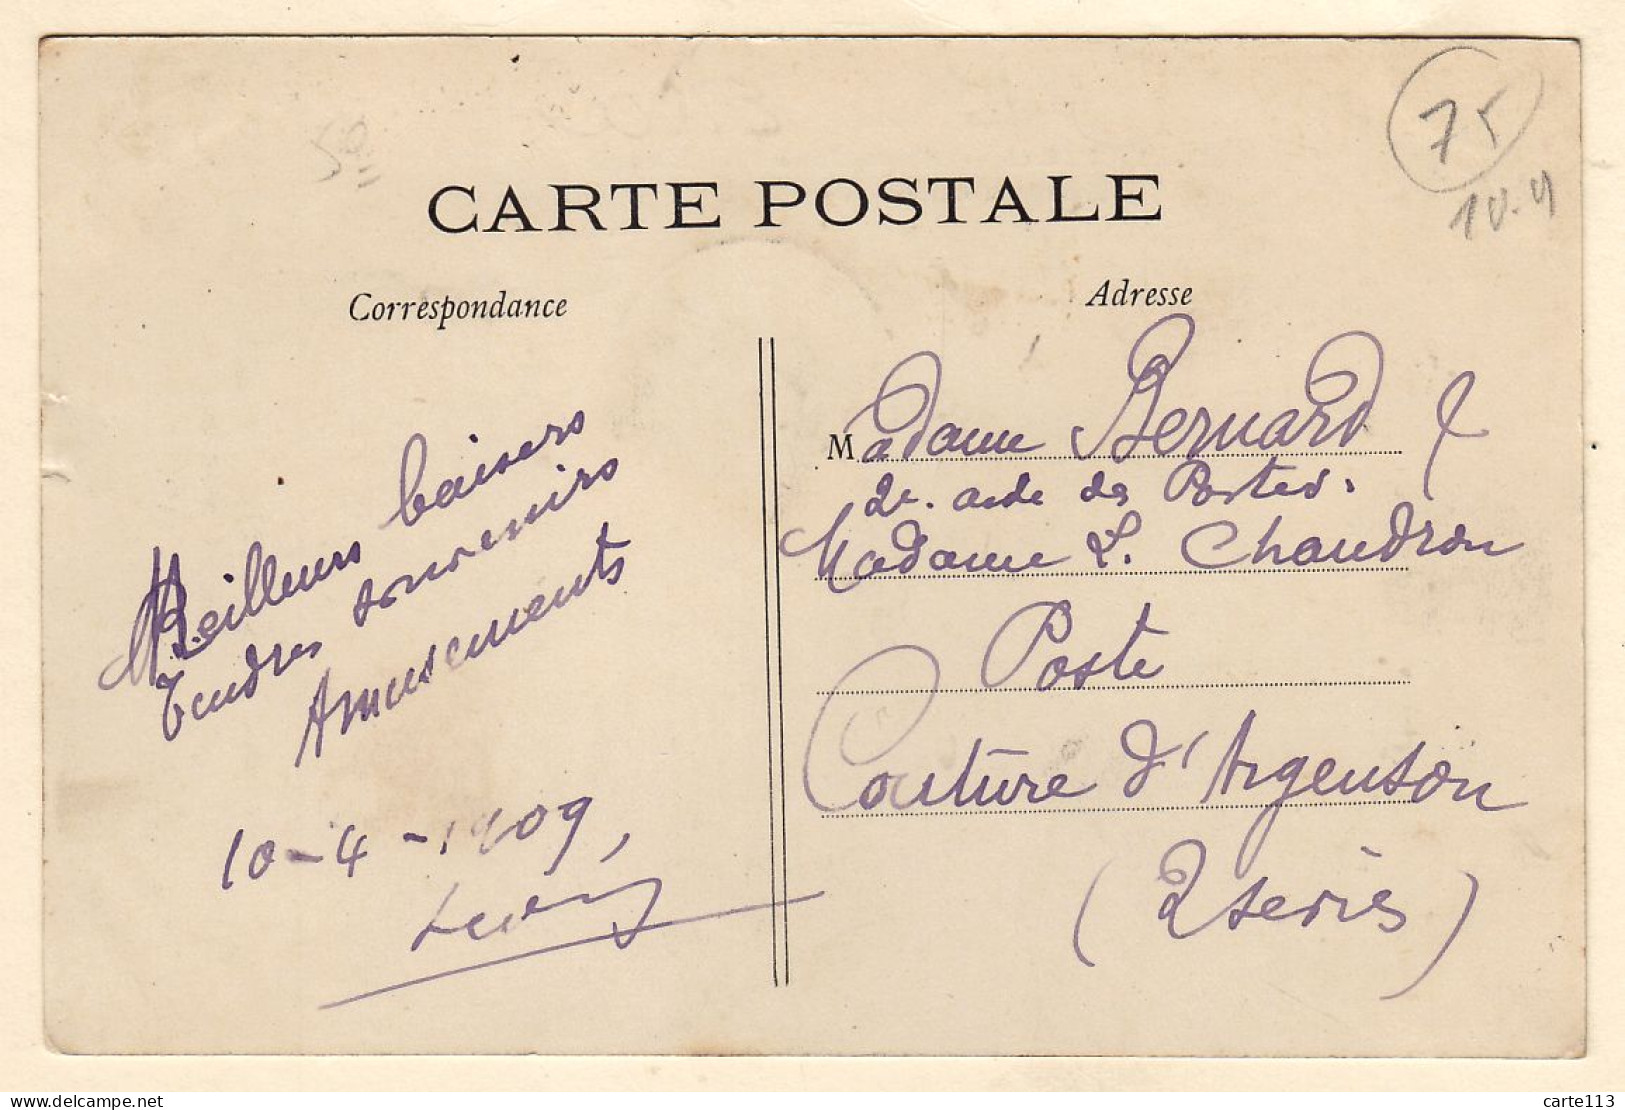 75
10-4
50
CARTE POSTALE
Correspondance
Adresse
Meilleurs baisers
Tendres souvenirs
Amusements
10-4-1909,
Madame Bernard &
2e. aide des Postes.
Madame L. Chaudron
Poste
Couture d'Argenson
(2 sevres)
carte113